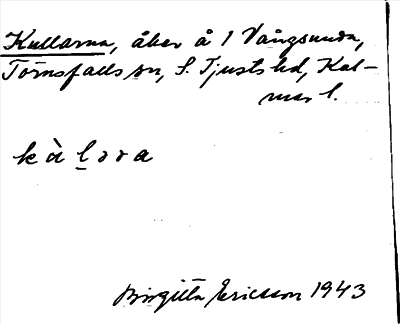 Kullarna, åker å 1 Vångsunda,
Törnsfalls sn, S. Tjusts hd, Kal-
mar l.
Birgitta Ericsson 1943